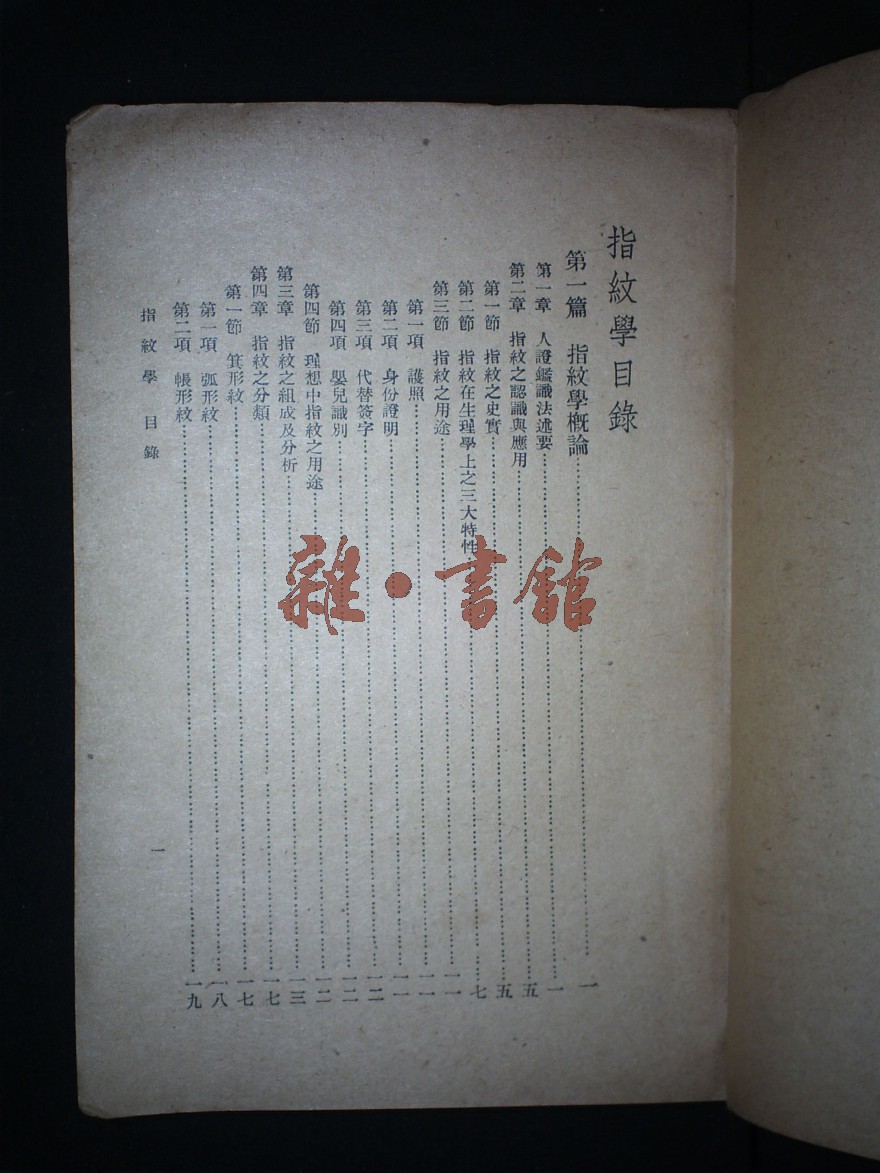 指紋學目錄
第一篇 指紋學概論……一
第一章 人證鑑識法述要……一
第二章 指紋之認識與應用……五
第一節 指紋之史實……五
第二節 指紋在生理學上之三大特性……七
第三節 指紋之用途……一一
第一項 護照……一一
第二項 身份證明……一一
第三項 代替簽字……一二
第四項 嬰兒識別……一二
第四節 理想中指紋之用途……一二
第三章 指紋之組成及分析……一三
第四章 指紋之分類……一七
第一節 箕形紋……一七
第一項 弧形紋……一八
第二項 帳形紋……一九
指紋學 目錄
一
雜·書館